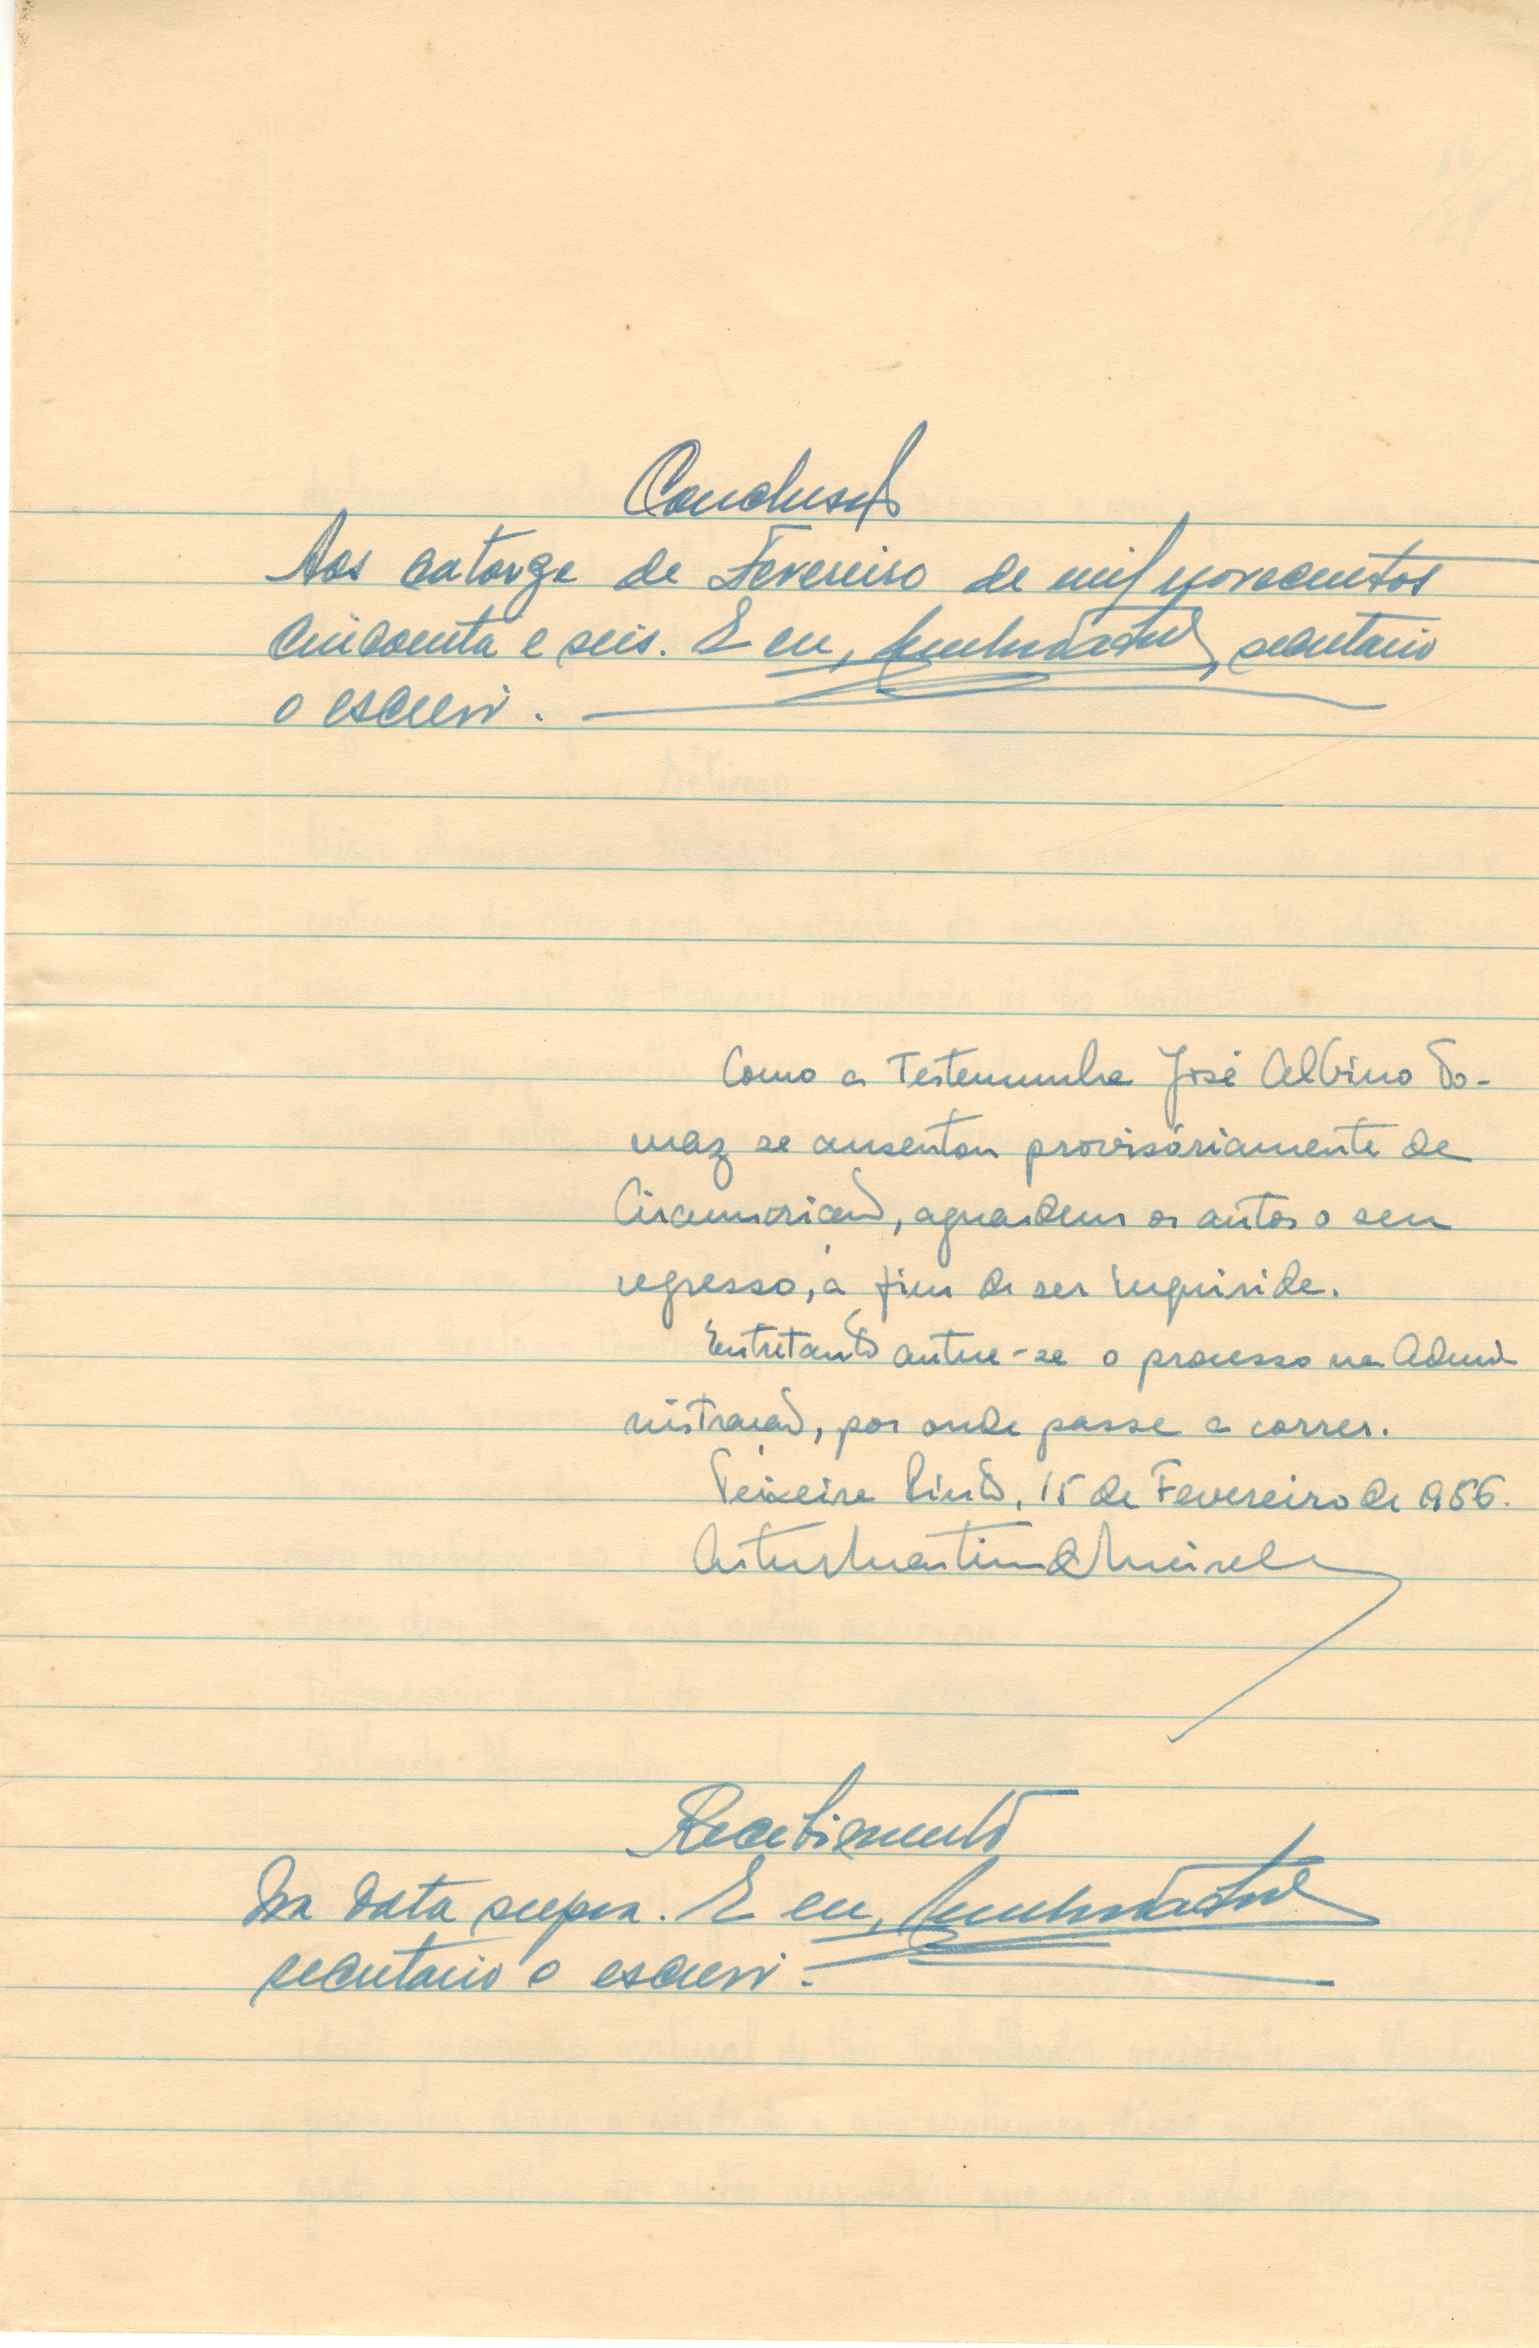 Conclusão
Aos catorze de Fevereiro de mil novecentos
cincoenta e seis. E eu, secretario
o escrevi.
Como a Testemunha José Albino To-
maz se ausentou provisóriamente da
Circunscrição, aguardem os autos o seu
regresso, a fim de ser inquirida.
Entretanto autue-se o processo na Admi-
nistração, por onde passe a correr.
Teixeira Pinto, 15 de Fevereiro de 1956.
Artur Martins de Meireles
Recebimento
Na data supra. E eu,
secretario o escrevi.